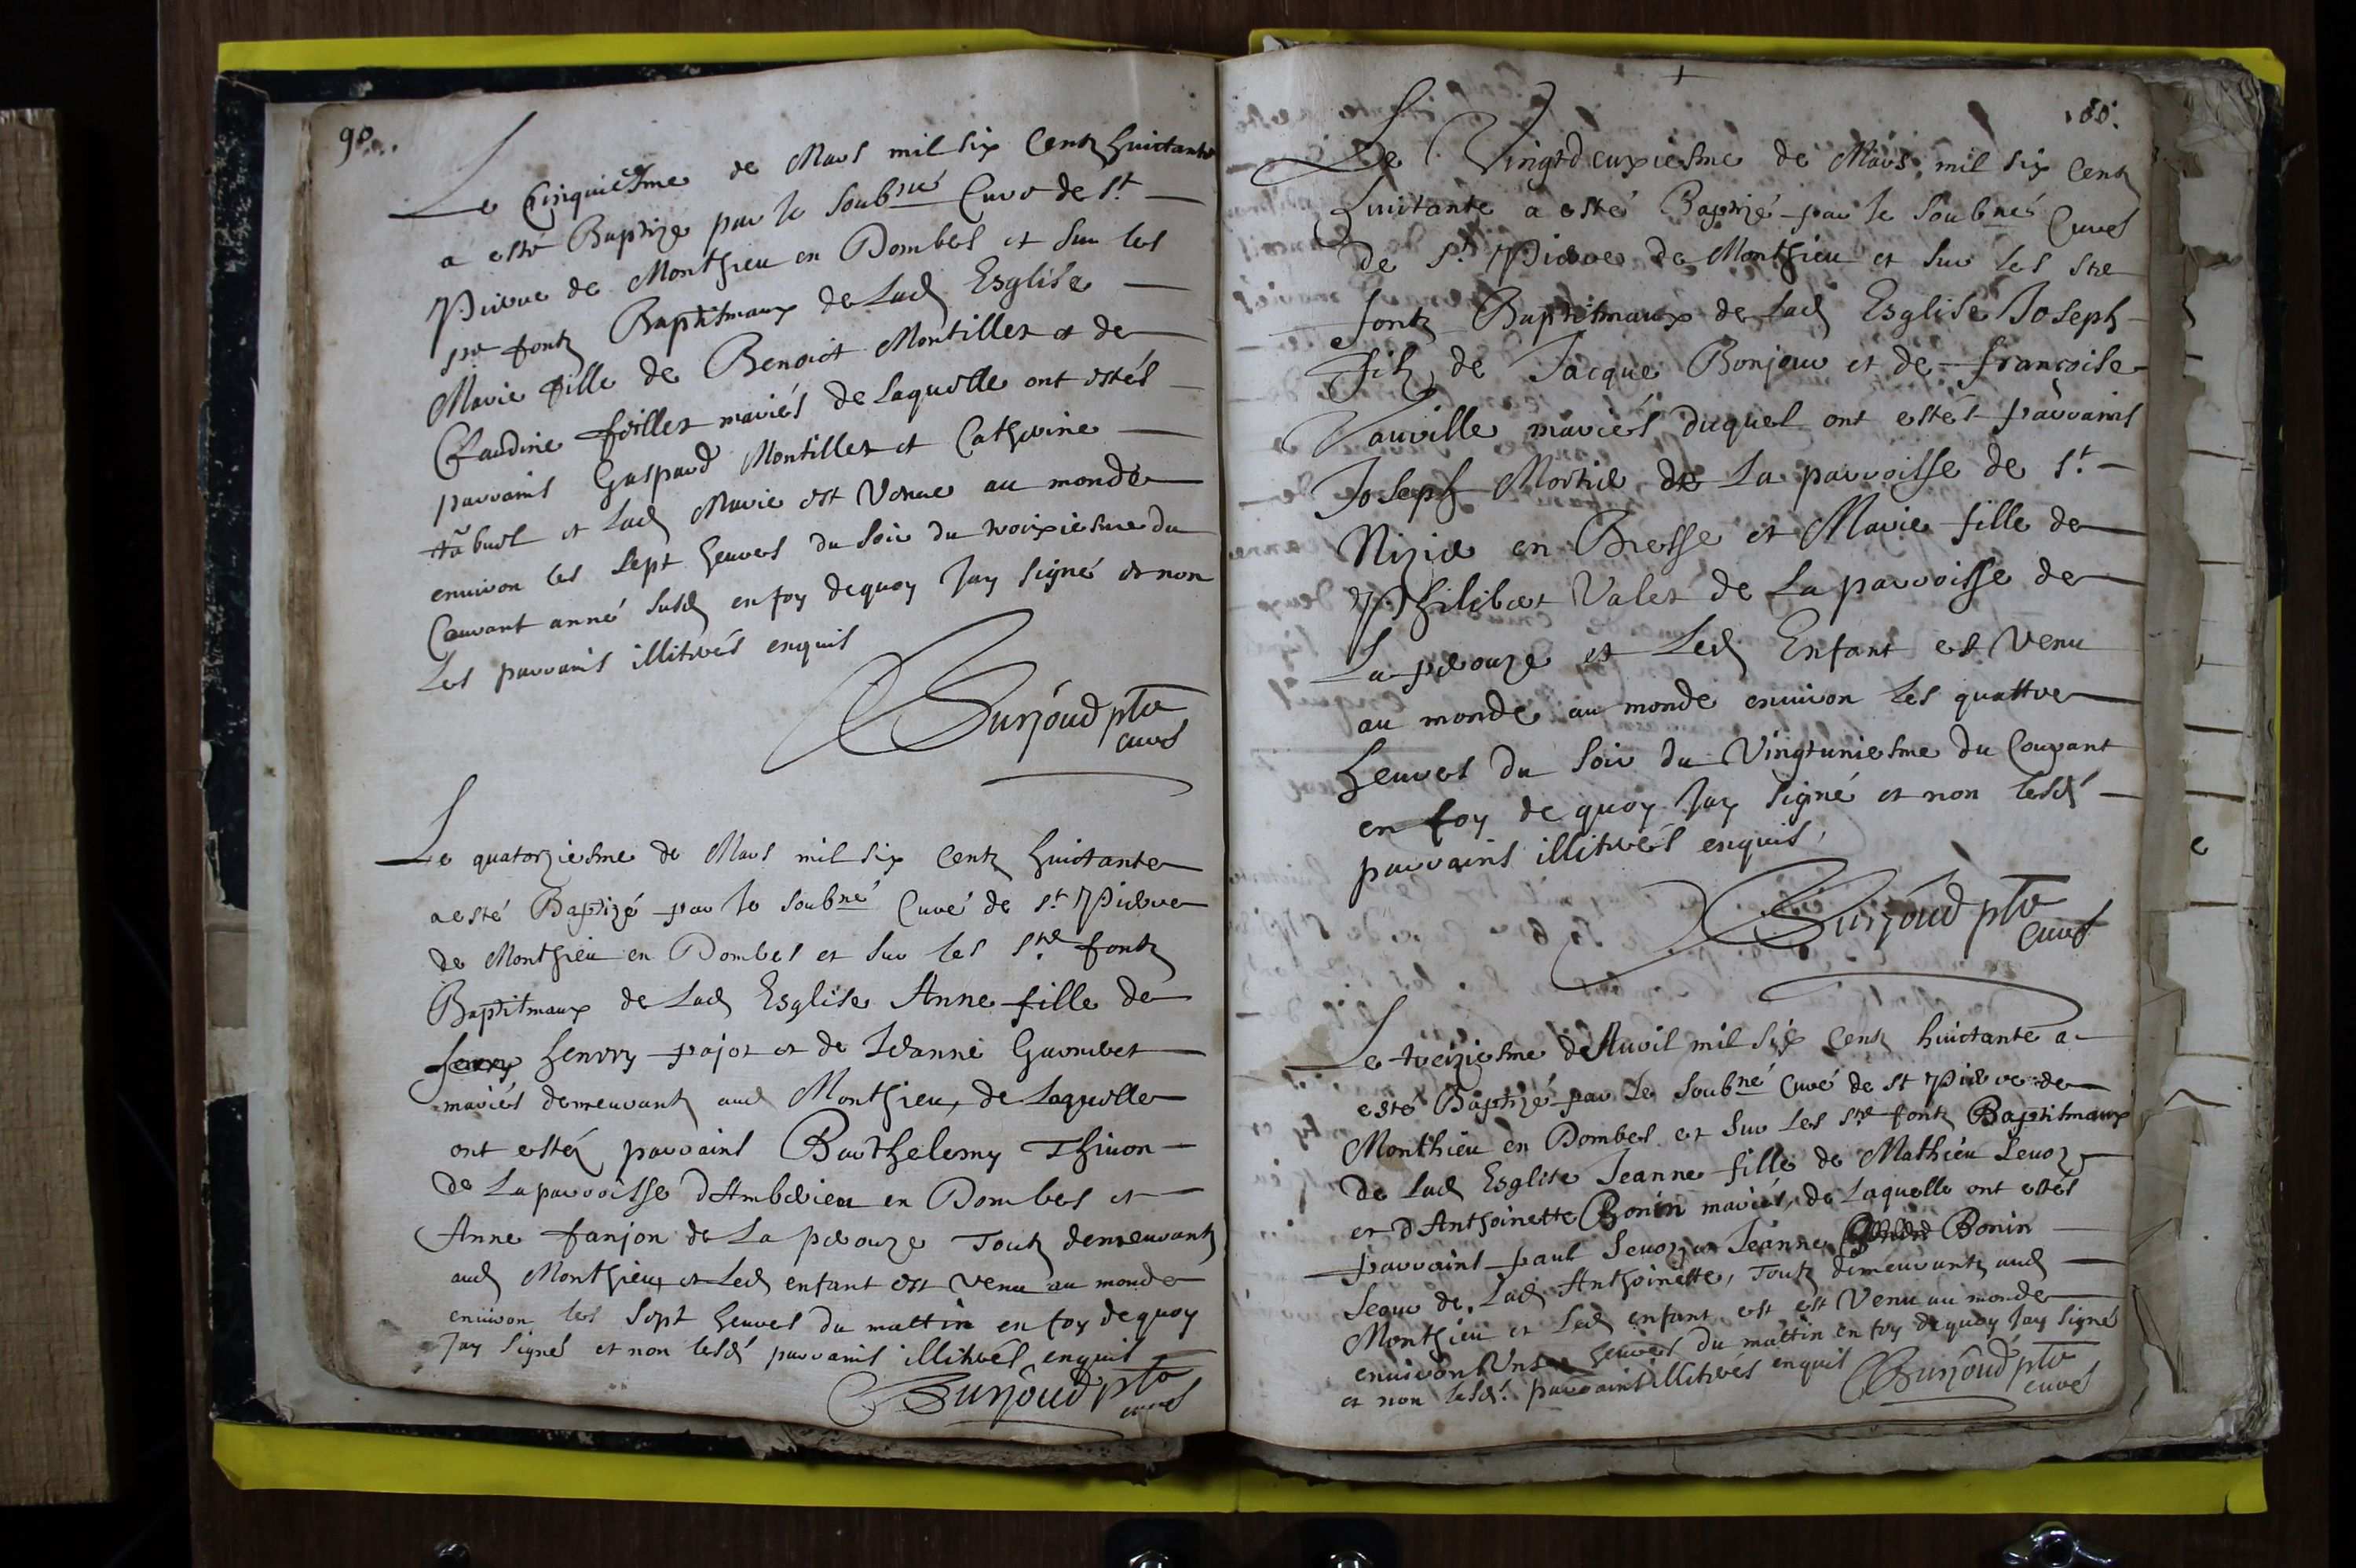 90
Le Cinquiesme de Mars mil six Centz huictante
a esté Baptizé par le soubné Curé de St
Pierre de Monthieu en Dombes et sur les
ste fontz Baptitmaux de Lad Esglise
Marie fille de Benoict Montillet et de
Claudine feillet mariés de Laquelle ont estés
parrains Gaspard Montillet et Catherine
et Lad Marie est Venue au monde
environ les Sept heures du Soir du troixiesme du
Courant anné Susd en foy dequoy Jay Signé et non
Les parrains illitirés enquis
Surjoud ptre
curé
Le quatorziesme de Mars mil six Centz huictante
a esté Baptizé par le soubné Curé de St Pierre
de Monthieu en Dombes et sur les ste fontz
Baptitmaux de Lad Esglise Anne fille de
henrry pajot et de Jeanne Guombet
mariés demeurantz aud Monthieu, de Laquelle
ont estéz parrains Barthelemy Thivon
de La parroisse d'Amberieu en Dombes et
Anne fanjon de La perouze Toutz demeurantz
aud Monthieu, et Led enfant est venu au monde
environ les Sept heures du mattin en foy dequoy
Jay Signé et non lesd parrains illitirés enquis
Surjoud ptre
curé
Le Vingtdeuxiesme de Mars mil six Centz
huictante a esté Baptizé par le soubné Curé
de St Pierre de Monthieu et sur les ste
fontz Baptitmaux de Lad Esglise Joseph
filz de Jacque Bonjour et de francoise
Vauville mariés duquel ont estés parrains
Joseph Mortier de La parroisse de St
Nizier en Bresse et Marie fille de
Philibert Valet de La parroisse de
La perouze et Led Enfant est Venu
au monde au monde environ les quattre
heures du Soir du Vingtuniesme du Courant
en foy de quoy Jay Signé et non lesd
parrains illitirés enquis,
Surjoud ptre
curé
Le treiziesme d'Avril mil six Centz huictante a
esté Baptizé par le soubné Curé de St Pierre de
Monthieu en Dombes et sur les ste fontz Baptitmaux
de Lad Esglise Jeanne fille de Mathieu Sevoz
et d'Anthoinette Bonin mariés, de Laquelle ont estés
parrains paul Sevoz et Jeanne Bonin
Seour de Lad Anthoinette, Toutz demeurantz aud
Monthieu et Led enfant est est Venu au monde
environ heures du mattin en foy dequoy Jay Signé
et non lesd. parrains illitirés enquis
Surjoud ptre
curé